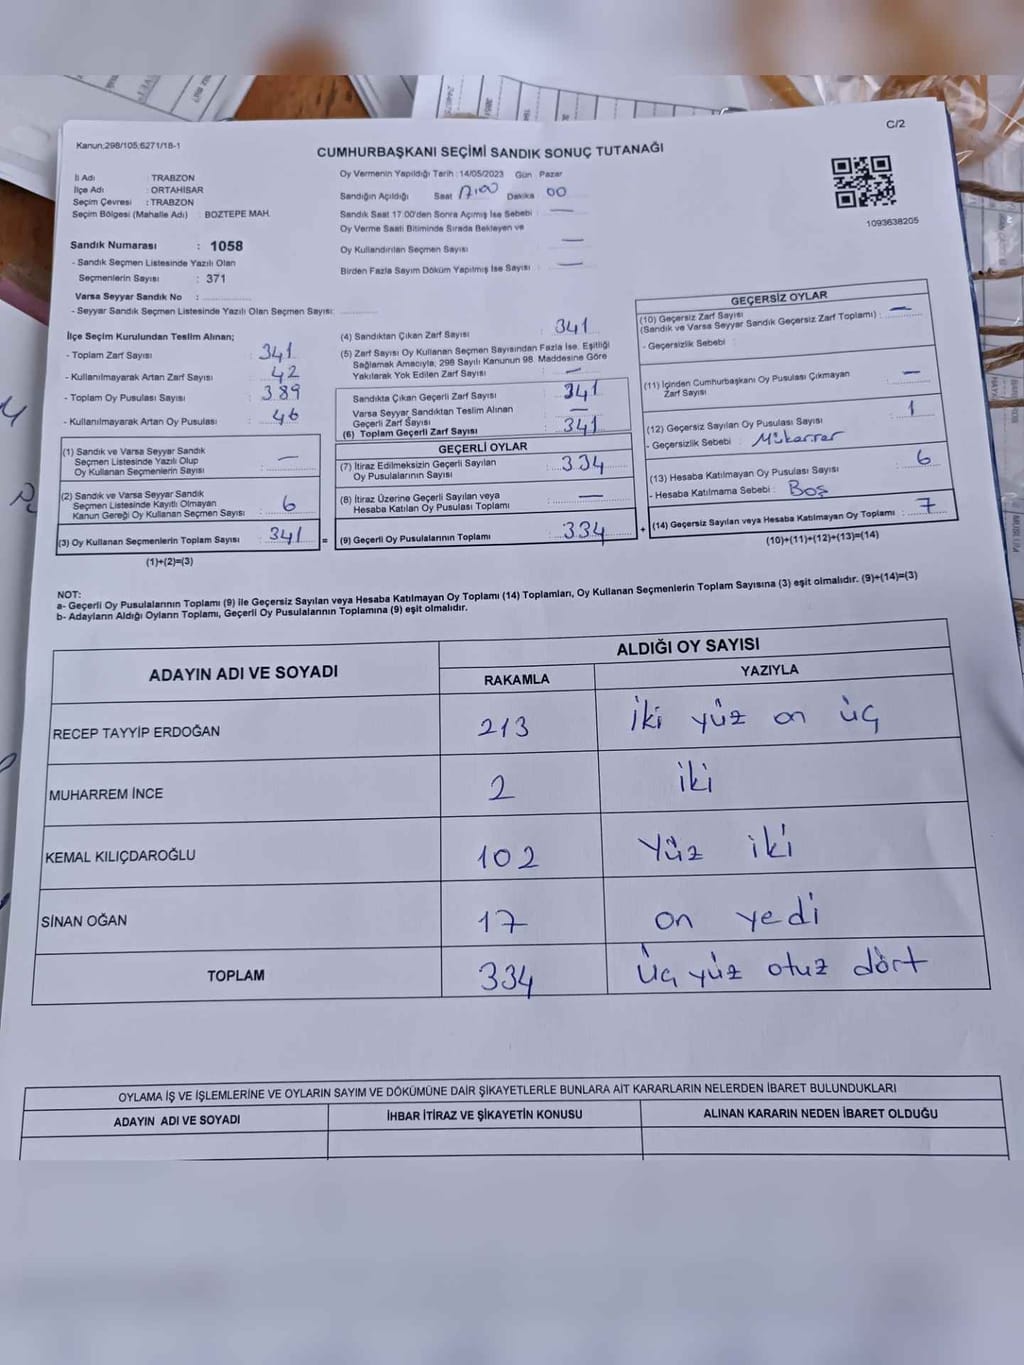 C/2
Kanun;298/105;6271/18-1
CUMHURBAŞKANI SEÇİMİ SANDIK SONUÇ TUTANAĞI
İl Adı : TRABZON
İlçe Adı : ORTAHİSAR
Seçim Çevresi : TRABZON
Seçim Bölgesi (Mahalle Adı) : BOZTEPE MAH.
Sandık Numarası : 1058
- Sandık Seçmen Listesinde Yazılı Olan
Seçmenlerin Sayısı : 371
Varsa Seyyar Sandık No :
- Seyyar Sandık Seçmen Listesinde Yazılı Olan Seçmen Sayısı:
Oy Vermenin Yapıldığı Tarih : 14/05/2023 Gün : Pazar
Sandığın Açıldığı Saat 17:00 Dakika 00
Sandık Saat 17.00'den Sonra Açımış İse Sebebi : —
Oy Verme Saati Bitiminde Sırada Bekleyen ve
Oy Kullandırılan Seçmen Sayısı —
Birden Fazla Sayım Döküm Yapılmış İse Sayısı : —
1093638205
İlçe Seçim Kurulundan Teslim Alınan;
- Toplam Zarf Sayısı : 341
- Kullanılmayarak Artan Zarf Sayısı : 42
- Toplam Oy Pusulası Sayısı : 389
- Kullanılmayarak Artan Oy Pusulası : 46
(1) Sandık ve Varsa Seyyar Sandık
Seçmen Listesinde Yazılı Olup
Oy Kullanan Seçmenlerin Sayısı : —
(2) Sandık ve Varsa Seyyar Sandık
Seçmen Listesinde Kayıtlı Olmayan
Kanun Gereği Oy Kullanan Seçmen Sayısı : 6
(3) Oy Kullanan Seçmenlerin Toplam Sayısı : 341 =
(1)+(2)=(3)
(4) Sandıktan Çıkan Zarf Sayısı : 341
(5) Zarf Sayısı Oy Kullanan Seçmen Sayısından Fazla İse, Eşitliği
Sağlamak Amacıyla, 298 Sayılı Kanunun 98. Maddesine Göre
Yakılarak Yok Edilen Zarf Sayısı : —
Sandıkta Çıkan Geçerli Zarf Sayısı : 341
Varsa Seyyar Sandıktan Teslim Alınan
Geçerli Zarf Sayısı : —
(6) Toplam Geçerli Zarf Sayısı : 341
GEÇERLİ OYLAR
(7) İtiraz Edilmeksizin Geçerli Sayılan
Oy Pusulalarının Sayısı : 334
(8) İtiraz Üzerine Geçerli Sayılan veya
Hesaba Katılan Oy Pusulası Toplamı : —
(9) Geçerli Oy Pusulalarının Toplamı : 334 +
GEÇERSİZ OYLAR
(10) Geçersiz Zarf Sayısı
(Sandık ve Varsa Seyyar Sandık Geçersiz Zarf Toplamı) : —
- Geçersizlik Sebebi :
(11) İçinden Cumhurbaşkanı Oy Pusulası Çıkmayan
Zarf Sayısı : —
(12) Geçersiz Sayılan Oy Pusulası Sayısı : 1
- Geçersizlik Sebebi : Mükerrer
(13) Hesaba Katılmayan Oy Pusulası Sayısı : 6
- Hesaba Katılmama Sebebi : Boş
(14) Geçersiz Sayılan veya Hesaba Katılmayan Oy Toplamı : 7
(10)+(11)+(12)+(13)=(14)
NOT:
a- Geçerli Oy Pusulalarının Toplamı (9) ile Geçersiz Sayılan veya Hesaba Katılmayan Oy Toplamı (14) Toplamları, Oy Kullanan Seçmenlerin Toplam Sayısına (3) eşit olmalıdır. (9)+(14)=(3)
b- Adayların Aldığı Oyların Toplamı, Geçerli Oy Pusulalarının Toplamına (9) eşit olmalıdır.
ADAYIN ADI VE SOYADI
ALDIĞI OY SAYISI
RAKAMLA YAZIYLA
RECEP TAYYİP ERDOĞAN 213 iki yüz on üç
MUHARREM İNCE 2 iki
KEMAL KILIÇDAROĞLU 102 Yüz iki
SİNAN OĞAN 17 on yedi
TOPLAM 334 üç yüz otuz dört
OYLAMA İŞ VE İŞLEMLERİNE VE OYLARIN SAYIM VE DÖKÜMÜNE DAİR ŞİKAYETLERLE BUNLARA AİT KARARLARIN NELERDEN İBARET BULUNDUKLARI
ADAYIN ADI VE SOYADI İHBAR İTİRAZ VE ŞİKAYETİN KONUSU ALINAN KARARIN NEDEN İBARET OLDUĞU